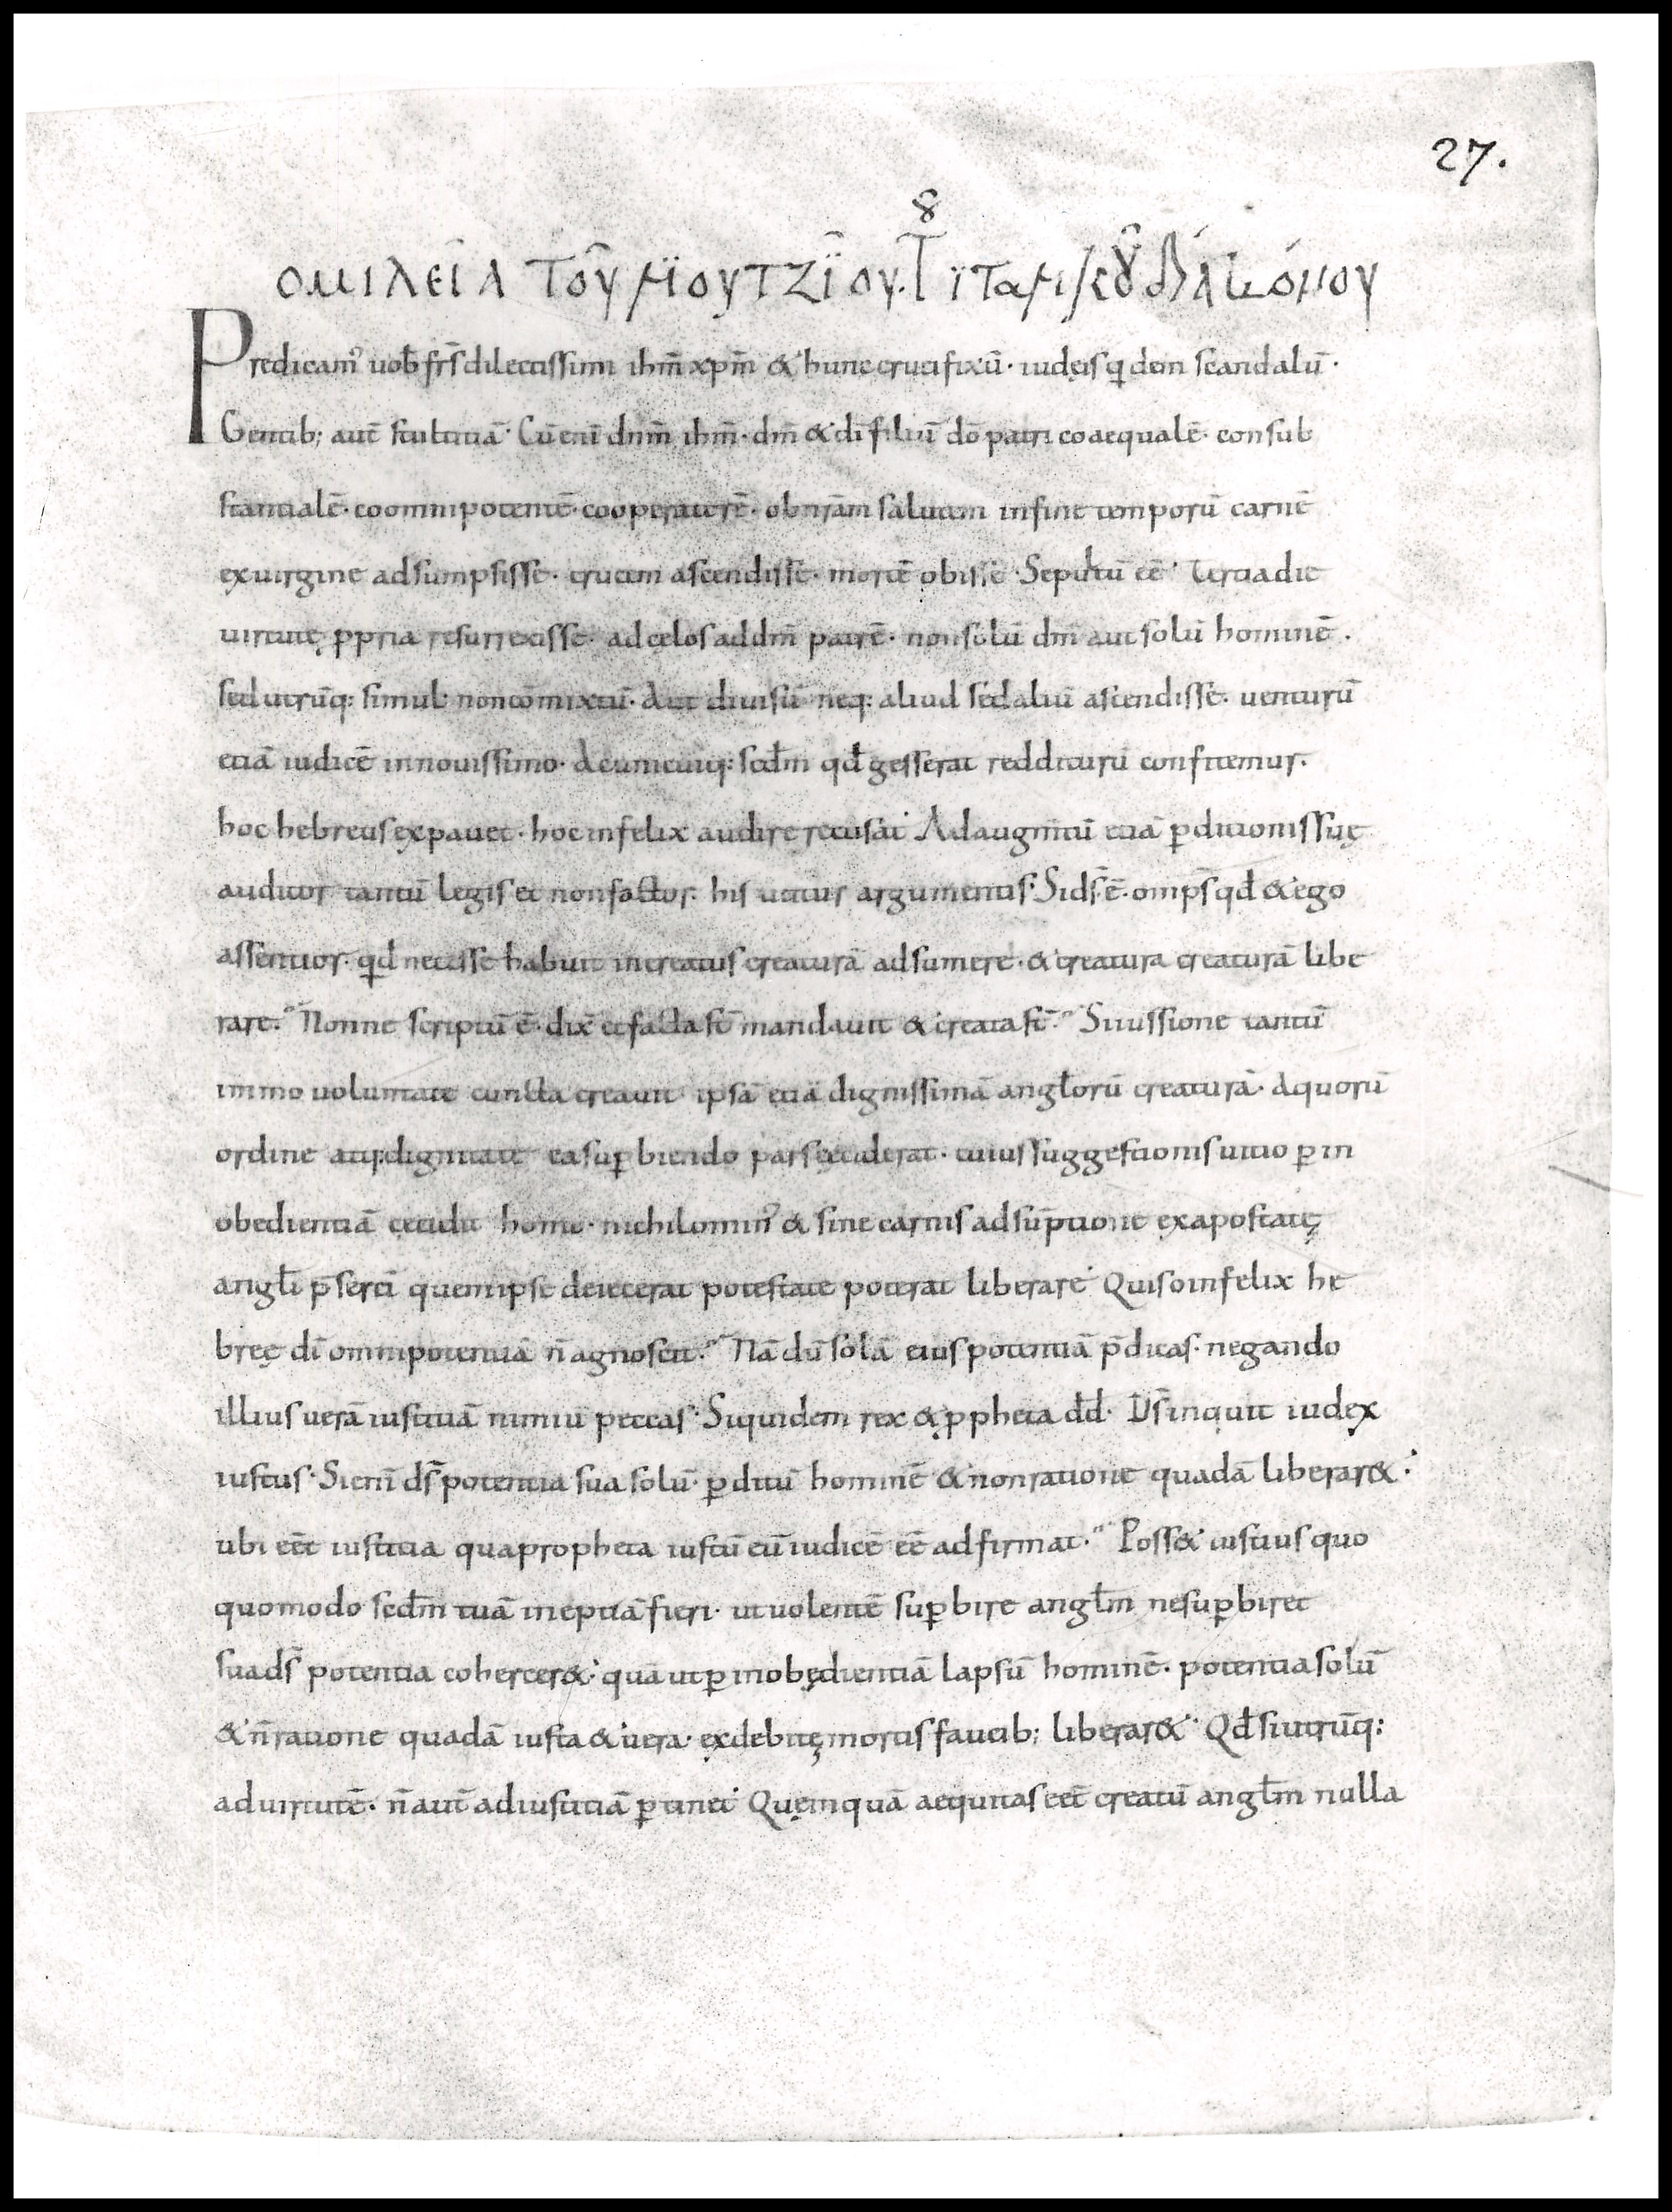 27.
ὁμιλεία τοῦ
Predicam᾽ uob̄ frs̄ dilectissimi ihm̄ xpm̄ & hunc crucifixū· iudęis qidem scandalū·
Gentib; aut̄ stultitiā· Cū eni dnm̄ ihm̄· dm̄ & di filiū dō patri coaequalē· consub
stantialē· coomnipotentē· cooperatorē· ob nrām salutem in fine temporū carnē
ex uirgine adsumpsisse· crucem ascendisse· mortē obisse· Sepultū eē· Tertia die
uirtutę ppria resurrexisse· ad cęlos ad dm̄ patrē· non solū dm̄ aut solū hominē·
sed utrūq: simul· non cōmixtū· Aut diuisū neq: aliud sed aliū ascendisse· uenturū
etiā iudicē in nouissimo· Ac unicuiq: scdm̄ qd̄ gesserat redditurū confitemur·
hoc hebreus expauet· hoc infelix audire recusat· Ad augmtū etiā pditionis suę
auditor tantū legis et non factor· his utitur argumentis· Si ds̄ ē· omps̄ qd̄ & ego
assentior· qid necesse habuit increatus creaturā adsumere· & creatura creaturā libe
rare· Nonne scriptū ē· dix̄ et facta st̄ mandauit & creata st̄· Si iussione tantū
immo uoluntate cuncta creauit ipsā etiā dignissimā anglorū creaturā· A quorū
ordine atq: dignitate ea supbiendo pars ceciderat· cuius suggestionis uitio p in
obedientiā cecidit homo· nichilomin᾽ & sine carnis adsūptione ex apostatę
angli p̄serti quem ipse deiecerat potestate poterat liberare· Quis o infelix he
breę di omnipotentiā n̄ agnoscit· Nā dū solā eius potentiā p̄dicas· negando
illius uerā iustitiā nimiū peccas· Siquidem rex & ppheta dd̄· Ds̄ inquit iudex
iustus· Si enī ds̄ potentia sua solū· pditū hominē & non ratione quadā liberar&·
ubi eēt iustitia qua propheta iustū eū iudicē eē adfirmat· Poss& iustius quo
quomodo scdm̄ tuā ineptiā fieri· ut uolentē supbire anglm̄ ne supbiret
sua ds̄ potentia cohercer&· quā ut p inobędientiā lapsū hominē· potentia solū
& n̄ ratione quadā iusta & uera· ex debitę mortis faucib; liberar&· Qd̄ si utrūq:
ad uirtutē· n̄ aut̄ ad iustitiā ptinet· Quęmquā aequitas eēt creatū anglm̄ nulla